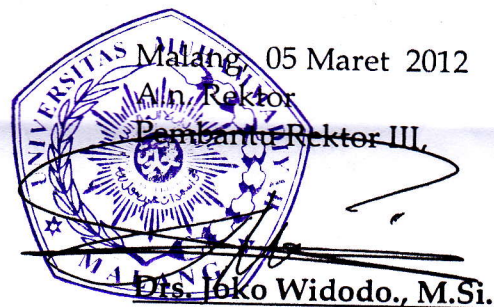 Malang, 05 Maret 2012
A.n. Rektor
Pembantu Rektor III,
Drs. Joko Widodo., M.Si.
UNIVERSITAS MUHAMMADIYAH
MALANG